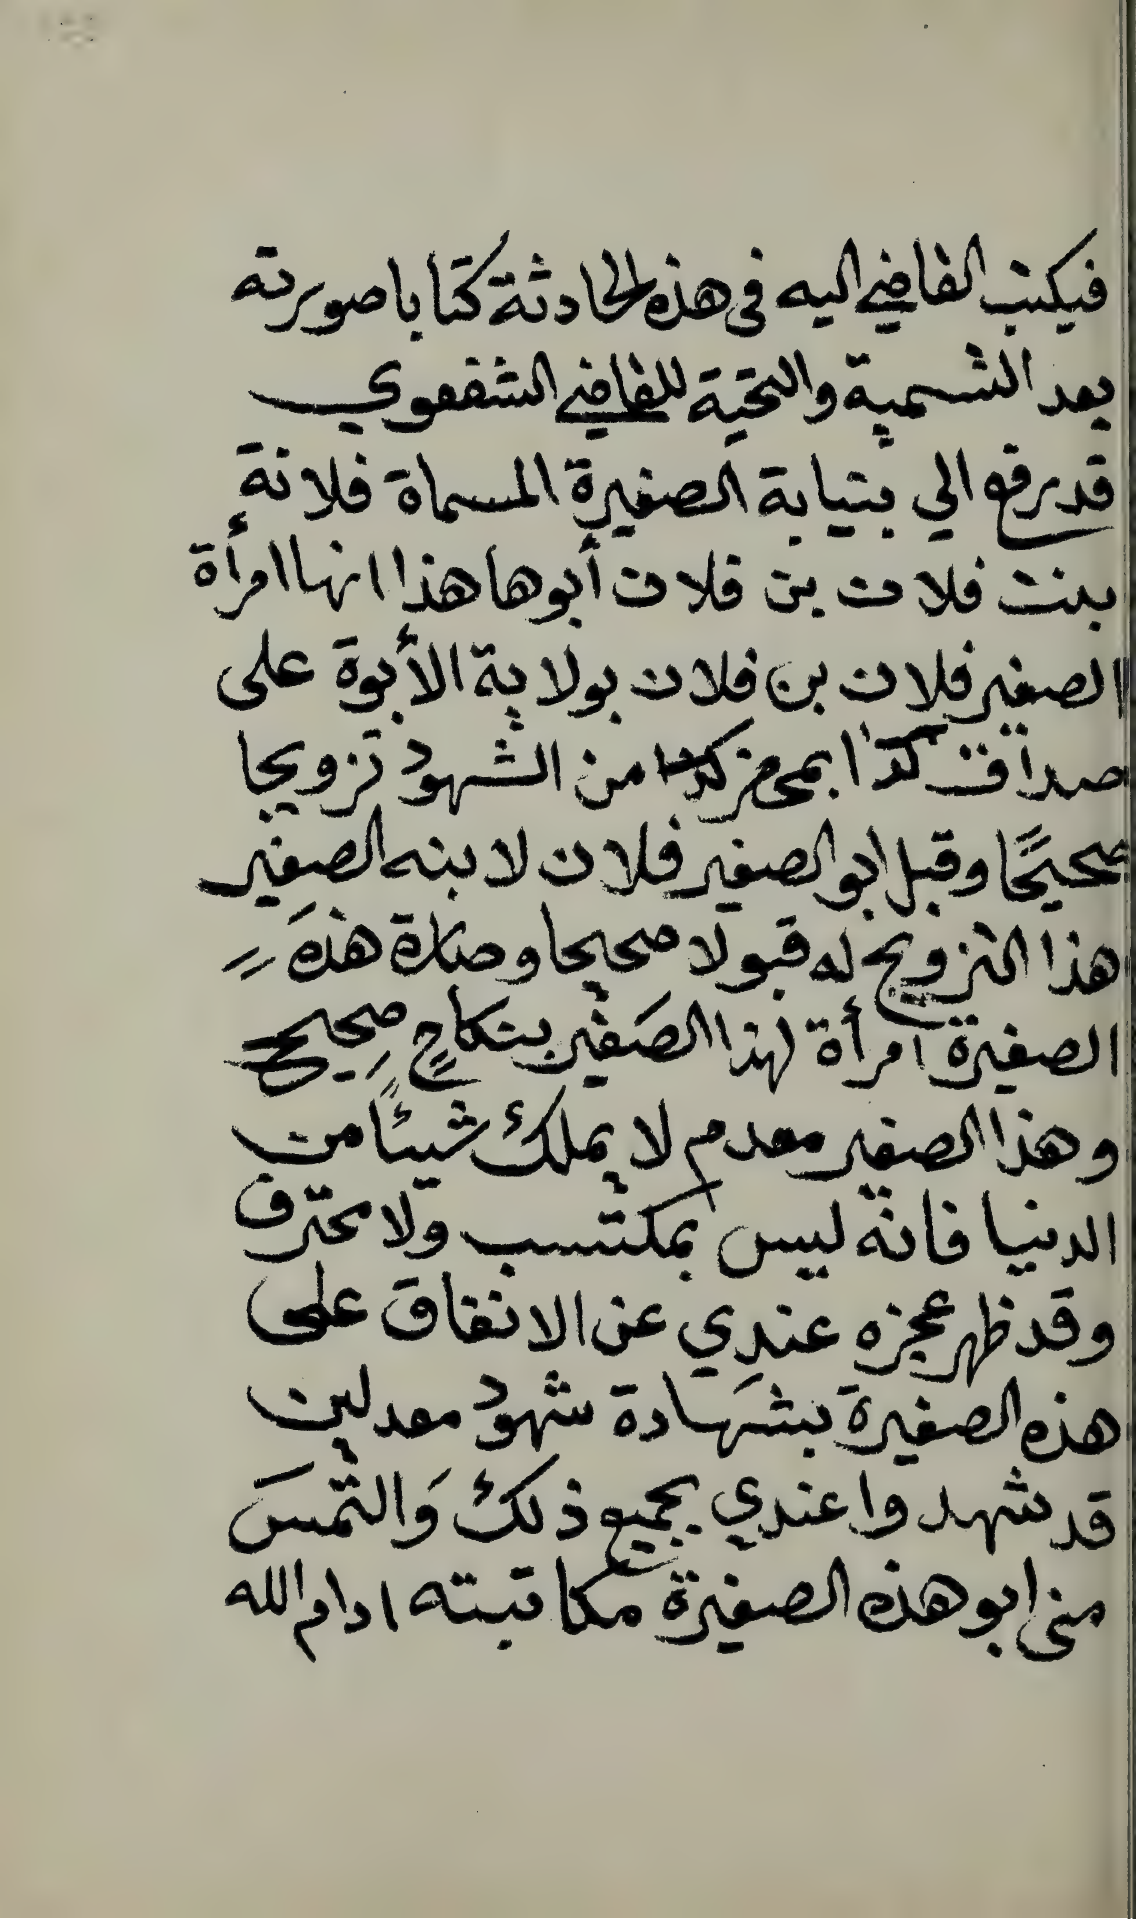 فيكتب القاضي اليه في هذه الحادثة كتابا صورته
بعد التسمية والتحية للقاضي الشفعوي
قد رفع الي بنيابة الصغيرة المسماة فلانة
بنت فلان بن فلان أبوها هذا انها امرأة
الصغير فلان بن فلان بولاية الأبوة على
صداق كذا بمحضر كذا من الشهود تزويجا
صحيحًا وقبل ابو الصغير فلان لابنه الصغير
هذا التزويج له قبولا صحيحا وصارة هذه
الصغيرة امرأة لهذا الصَغير بنكاحٍ صحِيح
وهذا الصغير معدم لا يملك شيئًا من
الدنيا فانه ليس بمكتسب ولا محترف
وقد ظهر عجزه عندِي عن الانفاق على
هذه الصغيرة بشهَادة شهود معدلين
قد شهدوا عندي بجميع ذلك وَالتمسَ
مني ابو هذه الصغيرة مكاتبته ادام الله